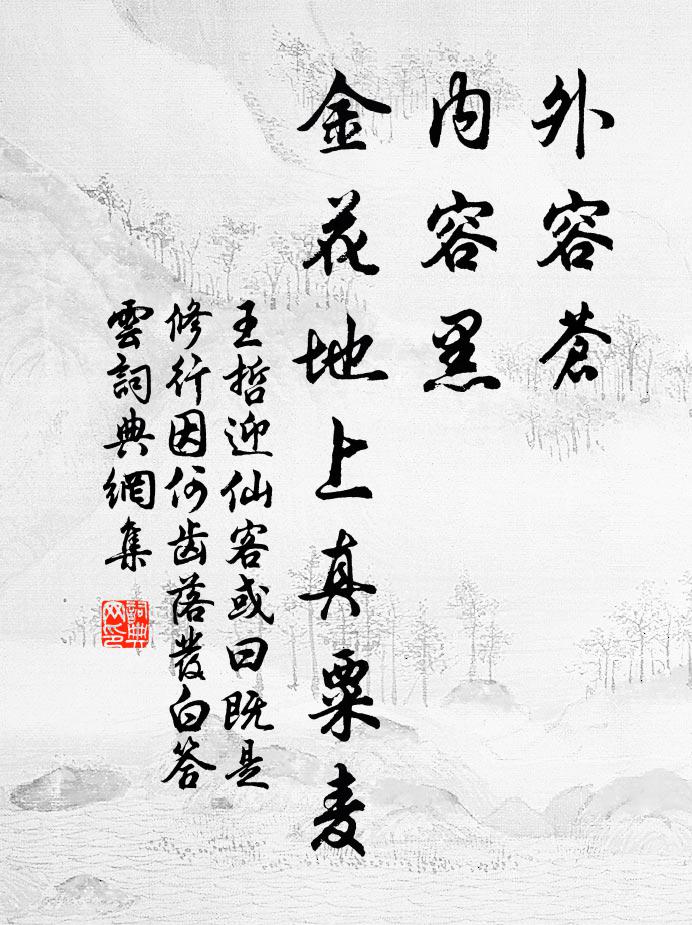 外容蒼
内容黑
金花地上真粟麦
王哲迎仙客或曰既是
修行因何齿落發白答
雲詞典網集
詞典网印